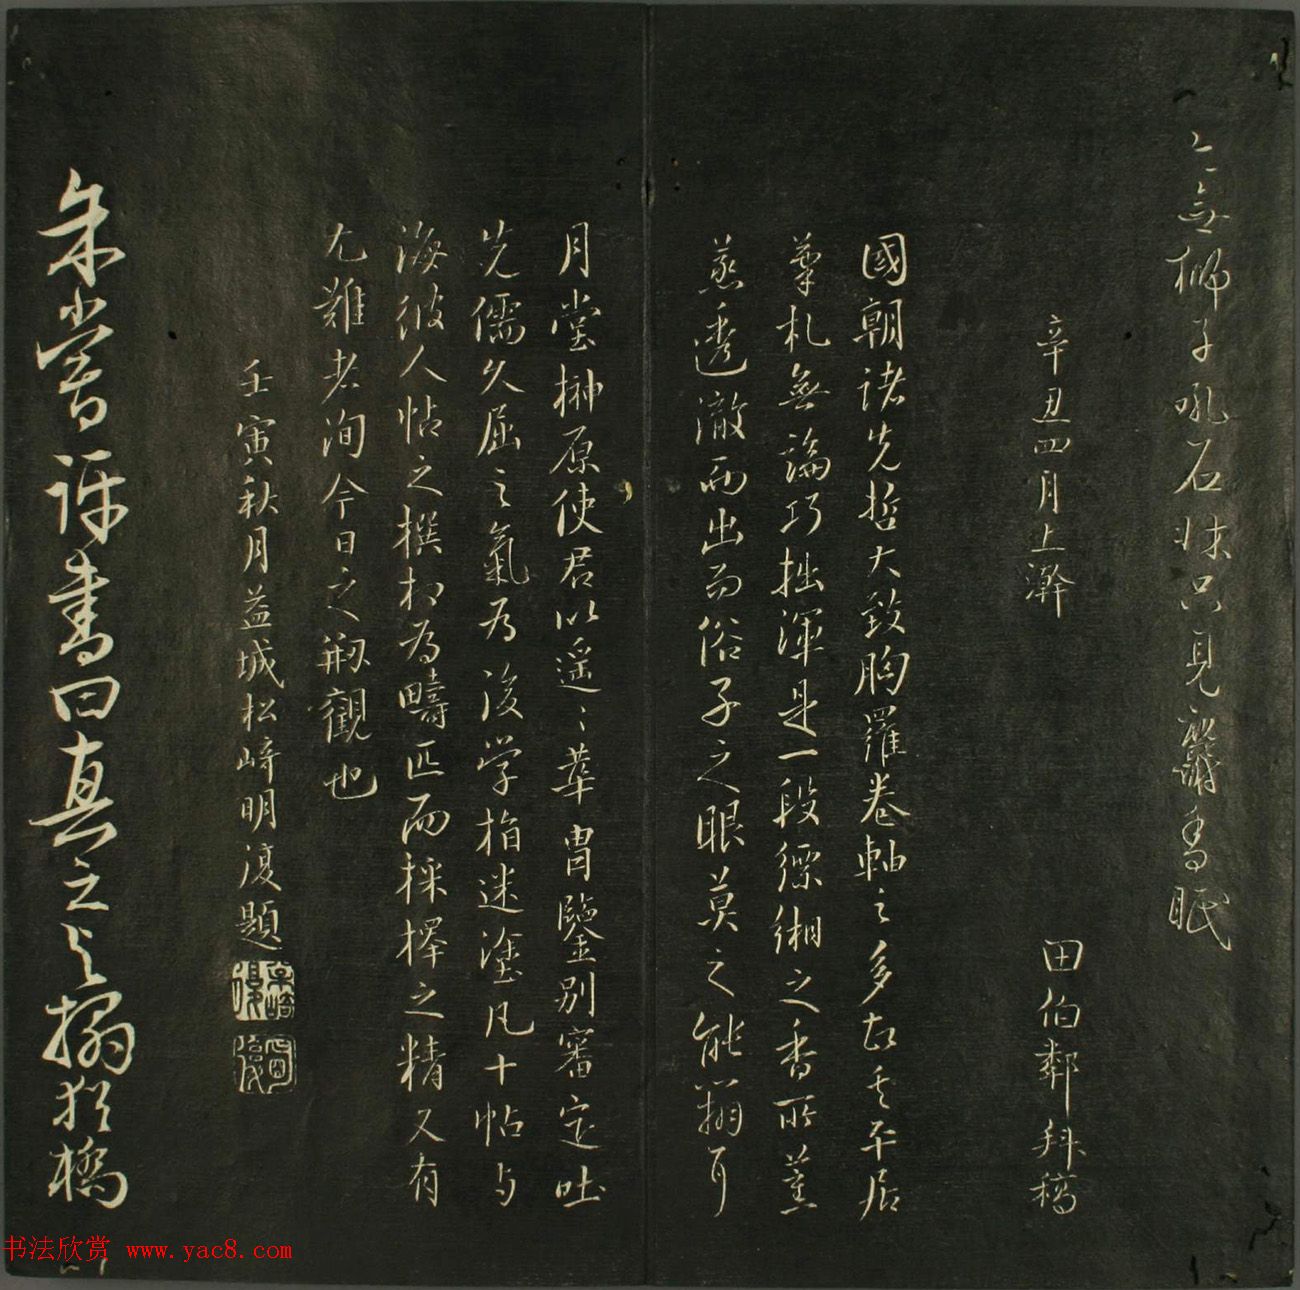 無獅子吼石牀只見麝香眠
辛丑四月上澣
田伯鄰拜稿
國朝諸先哲大致胸羅卷軸之多故其平居
筆札無論巧拙渾是一段縹緗之香所薰
蒸透澈而出而俗子之眼莫之能窺耳
月堂榊原使君以遥〻華冑鑒別審定吐
先儒久屈之氣為後学指迷塗凡十帖与
海彼人帖之撰相為疇匹而採擇之精又有
尤難者洵今日之觀也
壬寅秋月益城松崎明復題
朱嘗評書曰真之与搨猶橋
书法欣赏 www.yac8.com